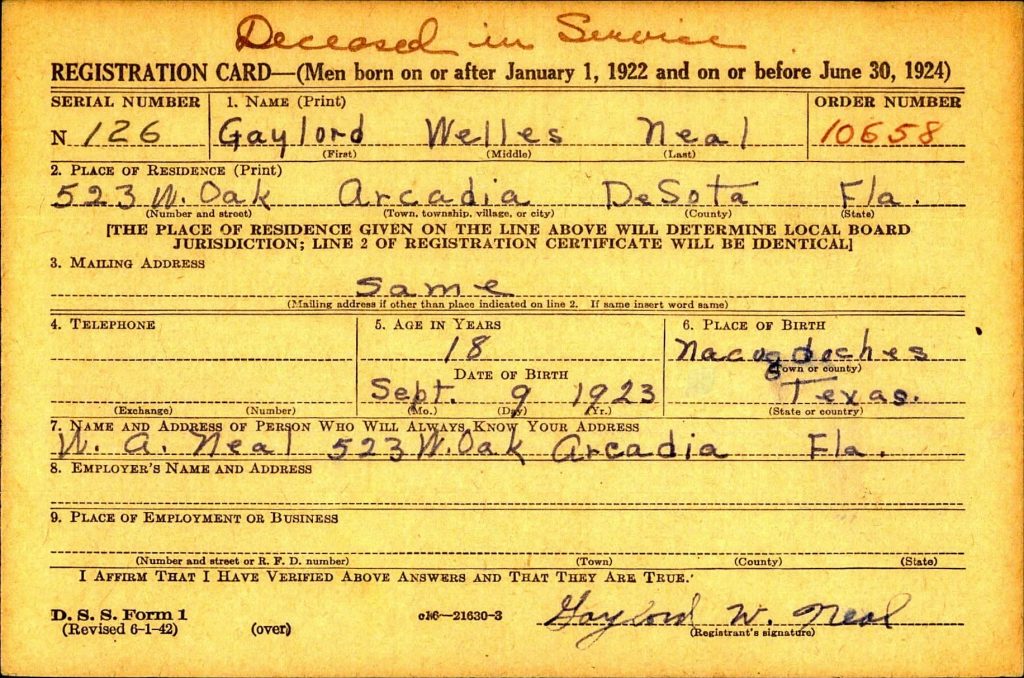 Deceased in Service
REGISTRATION CARD—(Men born on or after January 1, 1922 and on or before June 30, 1924)
SERIAL NUMBER 1. NAME (Print) ORDER NUMBER
N 126 Gaylord Welles Neal 10658
(First) (Middle) (Last)
2. PLACE OF RESIDENCE (Print)
523 W. Oak Arcadia DeSota Fla.
(Number and street) (Town, township, village, or city) (County) (State)
[THE PLACE OF RESIDENCE GIVEN ON THE LINE ABOVE WILL DETERMINE LOCAL BOARD
JURISDICTION; LINE 2 OF REGISTRATION CERTIFICATE WILL BE IDENTICAL]
3. MAILING ADDRESS
Same
(Mailing address if other than place indicated on line 2. If same insert word same)
4. TELEPHONE 5. AGE IN YEARS 6. PLACE OF BIRTH
18 Nacogdoches
(Town or county)
DATE OF BIRTH
Sept. 9 1923 Texas.
(Exchange) (Number) (Mo.) (Day) (Yr.) (State or country)
7. NAME AND ADDRESS OF PERSON WHO WILL ALWAYS KNOW YOUR ADDRESS
W. A. Neal 523 W. Oak Arcadia Fla.
8. EMPLOYER'S NAME AND ADDRESS
9. PLACE OF EMPLOYMENT OR BUSINESS
(Number and street or R. F. D. number) (Town) (County) (State)
I AFFIRM THAT I HAVE VERIFIED ABOVE ANSWERS AND THAT THEY ARE TRUE.
D. S. S. Form 1 16—21630-3 Gaylord W. Neal
(Revised 6-1-42) (over) (Registrant's signature)